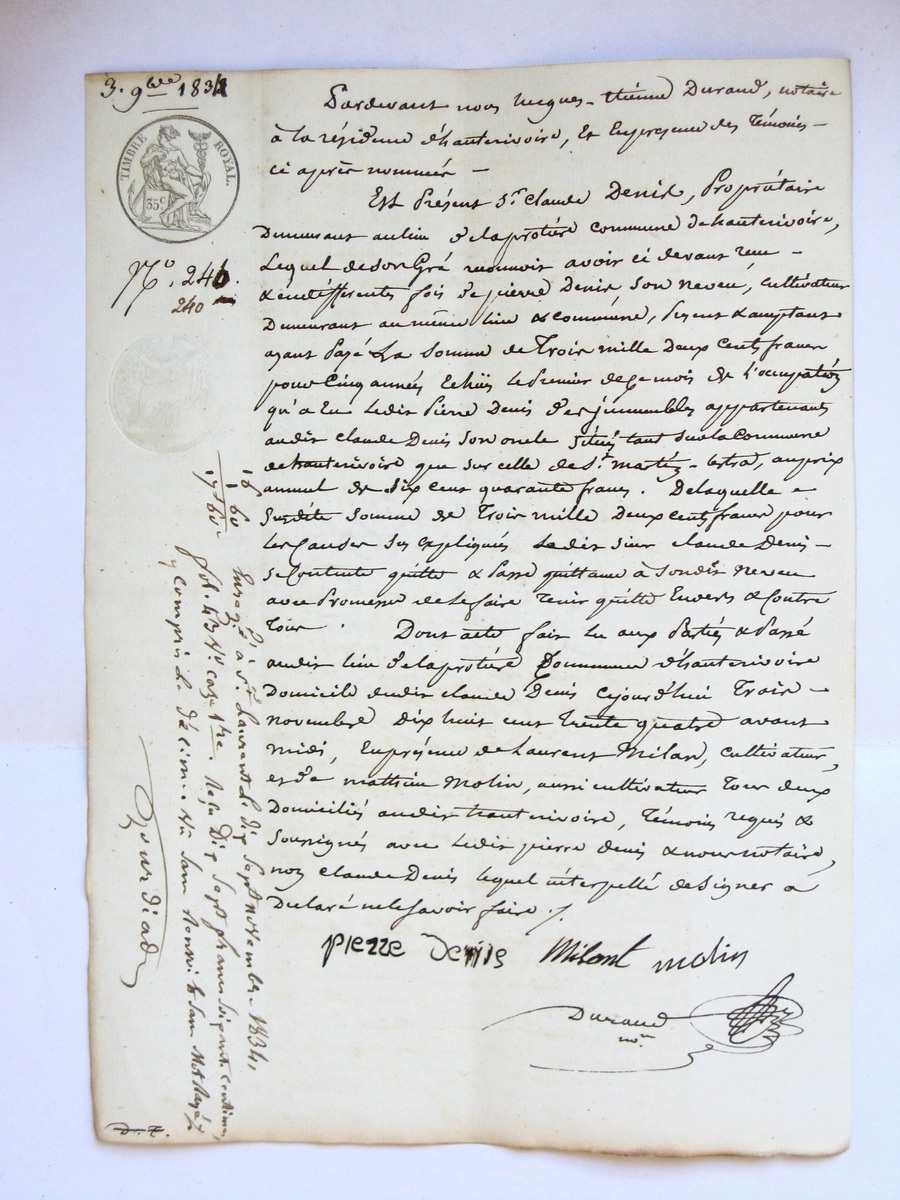 3. 9bre 1834
TIMBRE ROYAL.
35 c
N.o 246.
240
Pardevant nous Jacques-Etienne Durand, notaire
à la résidence d'hauterivoire, Et En presence des Témoins
ci après nommés
Est Présent Sr. Claude Denis, Propriétaire
Demeurant au lieu de la protière commune de hauterivoire,
Lequel de son Gré reconnoit avoir ci devant reçu
& endifferentes fois de pierre Denis son neveu, cultivateur
Demeurant au même lieu & commune, présent & acceptant
ayant Payé La Somme de Trois mille Deux Cents francs
pour Cinq années Echües Le Premier de ce mois de l'occupation
qu'a Eu Ledit Pierre Denis des jmmeubles appartenants
audit Claude Denis son oncle Situés tant Sur la Commune
de hauterivoire que sur celle de St. martin-lestra, au prix
annuel de Six Cent quarante francs. De laquelle
Susdite Somme de Trois mille Deux Cents francs pour
les Causes Sus Expliquées Ledit Sieur Claude Denis
se Contente quitte & Passe quittance à Son dit neveu
avec Promesse de Le faire Tenir quitte Envers & Contre
Tous. Dont acte fait Lu aux Parties & Passé
audit lieu de la protière Commune d'hauterivoire
Domicile dudit Claude Denis Cejourd'hui Trois
novembre Dix huit cent trente quatre avant
midi, En présence de Laurent Milan, cultivateur,
et de mathieu Molin, aussi cultivateur Tous deux
Domiciliés audit hauterivoire, Témoins requis &
Soussignés avec Ledit pierre denis & nous notaire,
non Claude Denis lequel interpellé de Signer a
Déclaré ne le Savoir faire ./.
pierre Denis Milant molin
Durand
nre
16
1 60
17 60
Enregé. à St. Laurent le dix Sept novembre 1834,
fol. 43 vo. case 1re. Reçu Dix Sept francs soixante centimes
y compris le décime
D. F.